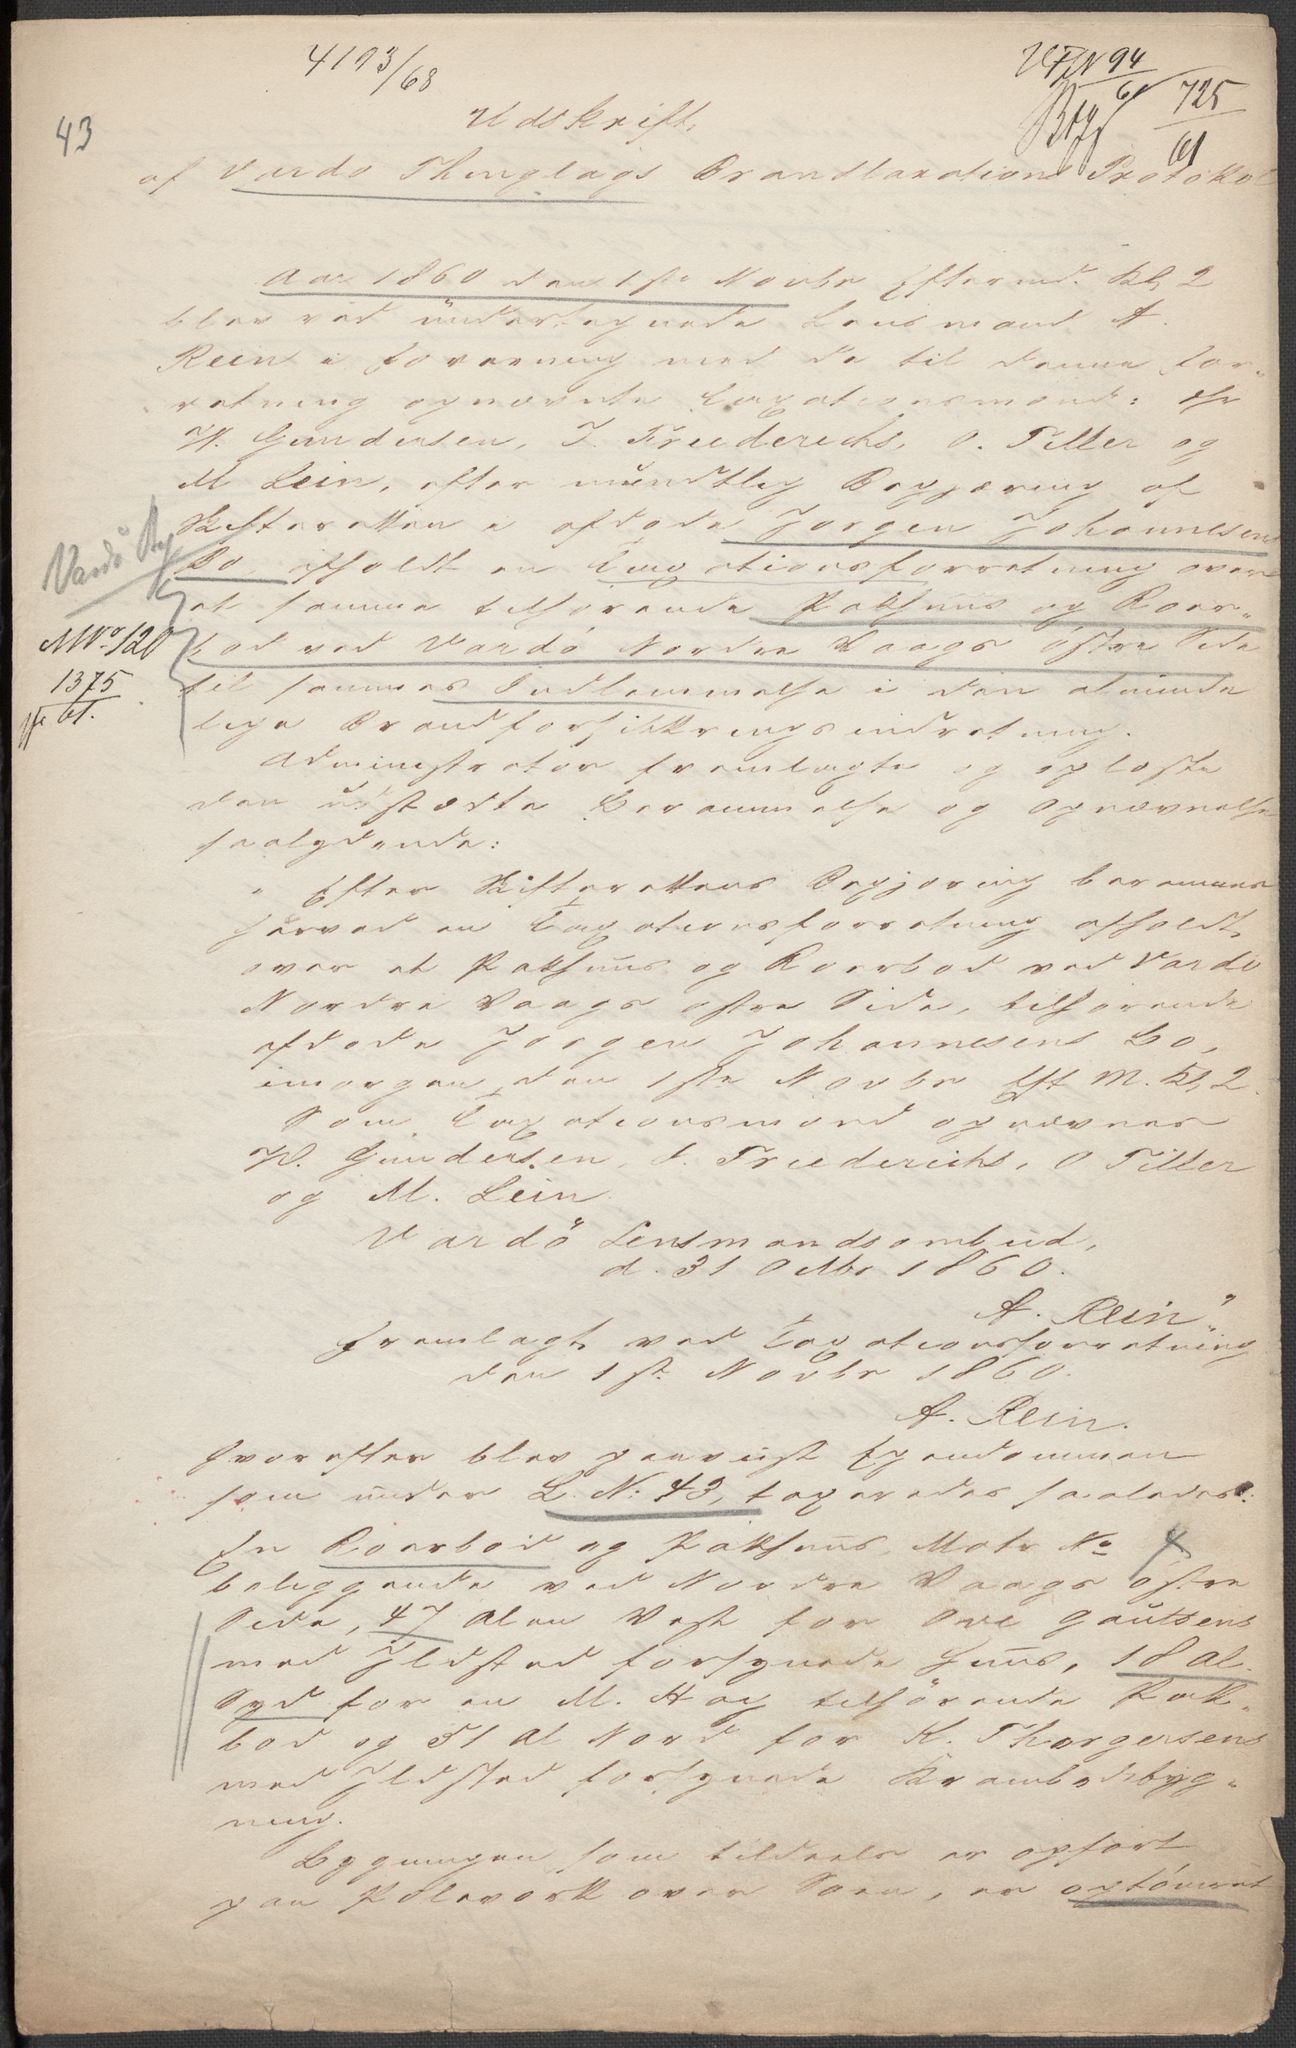 4193/68
43
725
61
Udskrift
af Vardø Thinglags Brandtaxations Protokol
Aar 1860 den 1ste Novbr Eftermd. Kl 2
blev ved undertegnede Lensmand A.
Rein i forening med de til denne for-
retning opnævnte Taxationsmænd:
W. Gundersen, J. Friederichs, O. Tiller og
M Lein, efter mundtlig Begjæring af
Skifteretten i afdøde Jørgen Johannesens
Bo, afholdt en Taxationsforretning over
et samme tilhørende Pakhuus og Roer-
bod ved Vardö Nordre Vaags östre Side
til sammes Indlemmelse i den alminde
lige Brandforsikkringsindretning.
Vardö By
MNo. 120
1375
61.
Administrator fremlagte og oplæste
den udstædte Berammelse og Opnævnelse
saalydende:
" Efter Skifterettens Begjæring berammes
herved en Taxationsforretning afholdt
over et Pakhuus og Roerbod ved Vardö
Nordre Vaags østre Side, tilhørende
afdøde Jørgen Johannesens Bo,
imorgen, den 1ste Novbr Eft M. Kl, 2
Som Taxationsmænd opnævnes
W. Gundersen, J. Friederichs, O Tiller
og M. Lein.
Vardö Lensmandsombud,
d. 31 Octbr 1860.
A. Rein"
Fremlagt ved Taxationsforretning
den 1ste Novbr 1860.
A. Rein.
Hvorefter blev paavist Ejendommen
som under L. N: 43, taxeredes saaledes:
En Roerbod og Pakhuus, Matr No 4
beliggende ved Nordre Vaags østre
Side, 47 Alen Vest for Ove Gautsens
med Ildsted forsynede Huus, 18 Al.
Syd for en M. Hog tilhörende Pak-
bod og 31 Al Nord for K. Thorgersens
med Ildsted forsynede Krambodbyg-
ning.
Bygningen som tildeels er opført
paa Pæleværk over Søen, er optömret